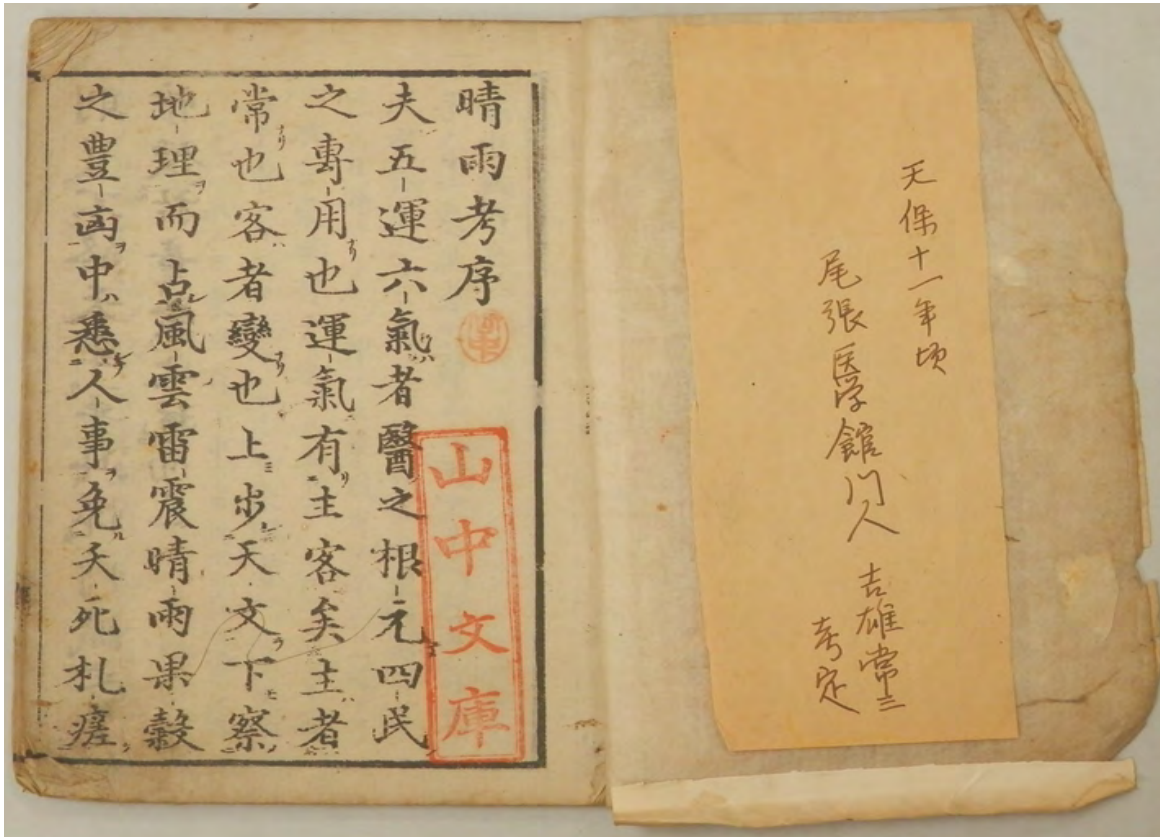 天保十一年頃
尾張医学館門人 吉雄常三
考定
晴雨考序
山中文庫
夫五運六氣者醫之根元四民
之專用也運氣有主客矣主者
常也客者變也上步天文下察
地理而占風雲雷震晴雨果穀
之豊凶中悉人事免夭死札瘥